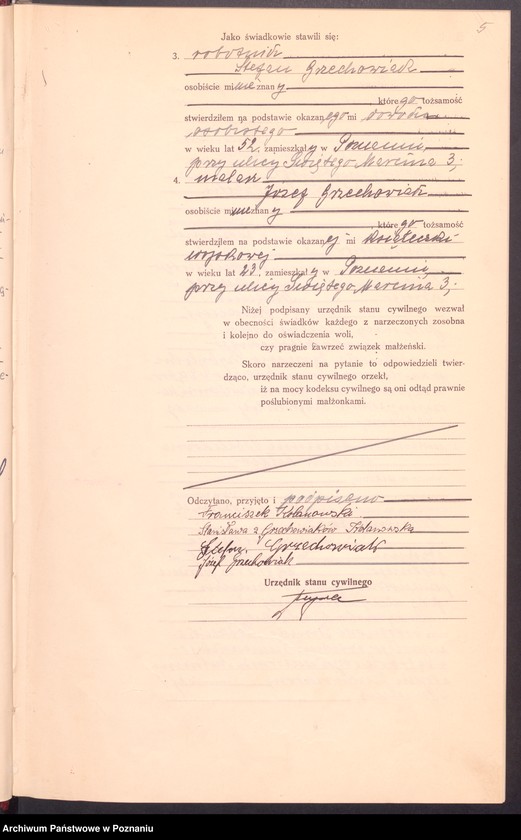 5
Jako świadkowie stawili się:
3. robotnik
Stefan Grzechowiak
osobiście mi nieznany
którego tożsamość
stwierdziłem na podstawie okazanego mi dowodu
osobistego
w wieku lat 52, zamieszkały w Poznaniu,
przy ulicy Świętego Marcina 3;
4. malarz
Józef Grzechowiak
osobiście mi nieznany
którego tożsamość
stwierdziłem na podstawie okazanej mi książeczki
wojskowej
w wieku lat 23, zamieszkały w Poznaniu,
przy ulicy Świętego Marcina 3;
Niżej podpisany urzędnik stanu cywilnego wezwał
w obecności świadków każdego z narzeczonych zosobna
i kolejno do oświadczenia woli,
czy pragnie zawrzeć związek małżeński.
Skoro narzeczeni na pytanie to odpowiedzieli twier-
dząco, urzędnik stanu cywilnego orzekł,
iż na mocy kodeksu cywilnego są oni odtąd prawnie
poślubionymi małżonkami.
Odczytano, przyjęto i podpisano
Franciszek Kolanowski
Stanisława z Grzechowiaków Kolanowska
Stefan Grzechowiak
Józef Grzechowiak
Urzędnik stanu cywilnego
Archiwum Państwowe w Poznaniu